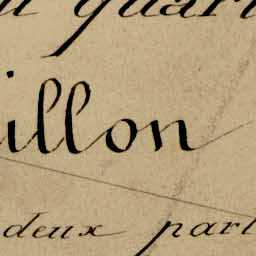 quart
illon
deux part